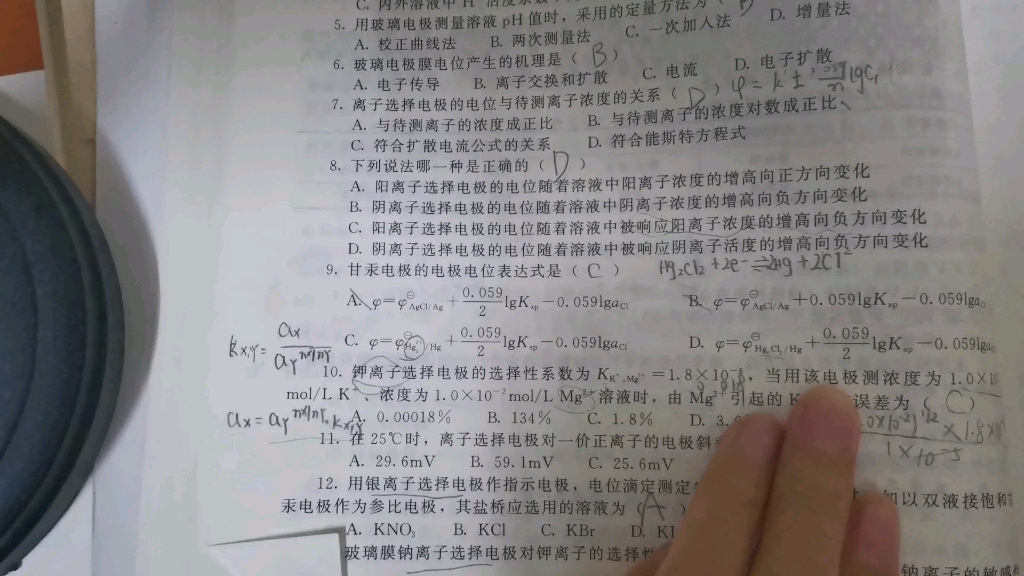 C. 内外溶液中 H⁺ 活度系数
5. 用玻璃电极测量溶液 pH 值时，采用的定量方法为（ D ）
A. 校正曲线法 B. 两次测量法 C. 一次加入法 D. 增量法
6. 玻璃电极膜电位产生的机理是（ B ）
A. 电子传导 B. 离子交换和扩散 C. 电流 D. 电子扩散
7. 离子选择电极的电位与待测离子浓度的关系（ D ） φ = k' ± lgC
A. 与待测离子的浓度成正比 B. 与待测离子的浓度对数成正比
C. 符合扩散电流公式的关系 D. 符合能斯特方程式
8. 下列说法哪一种是正确的（ D ）
A. 阳离子选择电极的电位随着溶液中阳离子浓度的增高向正方向变化
B. 阴离子选择电极的电位随着溶液中阴离子浓度的增高向负方向变化
C. 阳离子选择电极的电位随着溶液中被响应阳离子浓度的增高向负方向变化
D. 阴离子选择电极的电位随着溶液中被响应阴离子活度的增高向负方向变化
9. 甘汞电极的电极电位表达式是（ C ） Hg₂Cl₂ + 2e⁻ ⇌ 2Hg + 2Cl⁻
A. φ=φ⊖AgCl/Ag + 0.059/2 lgKsp − 0.059lgaCl B. φ=φ⊖AgCl/Ag + 0.059lgKsp − 0.059lga
C. φ=φ⊖Hg/Hg + 0.059/2 lgKsp − 0.059lgaCl D. φ=φ⊖Hg₂Cl₂/Hg + 0.059/2 lgKsp − 0.059lga
Kx,y = ax/ay^nx/ny
10. 钾离子选择电极的选择性系数为 K K⁺,Mg²⁺ =1.8×10⁻⁶，当用该电极测浓度为 1.0×1
mol/L K⁺、浓度为 1.0×10⁻² mol/L Mg²⁺ 溶液时，由 Mg²⁺ 引起的 K 误差为（ C ）
ax = ay^nx/ny · Kx,y
A. 0.00018% B. 134% C. 1.8% D. 3.
(10⁻²)^1/2 × 1.8 × / 1×10⁻⁵
11. 在 25℃时，离子选择电极对一价正离子的电极斜
A. 29.6mV B. 59.1mV C. 25.6mV
12. 用银离子选择电极作指示电极，电位滴定测定 如以双液接饱和
汞电极作为参比电极，其盐桥应选用的溶液为（ A ）
A. KNO₃ B. KCl C. KBr D. K
玻璃膜钠离子选择电极对钾离子的选择性 钠离子的敏感